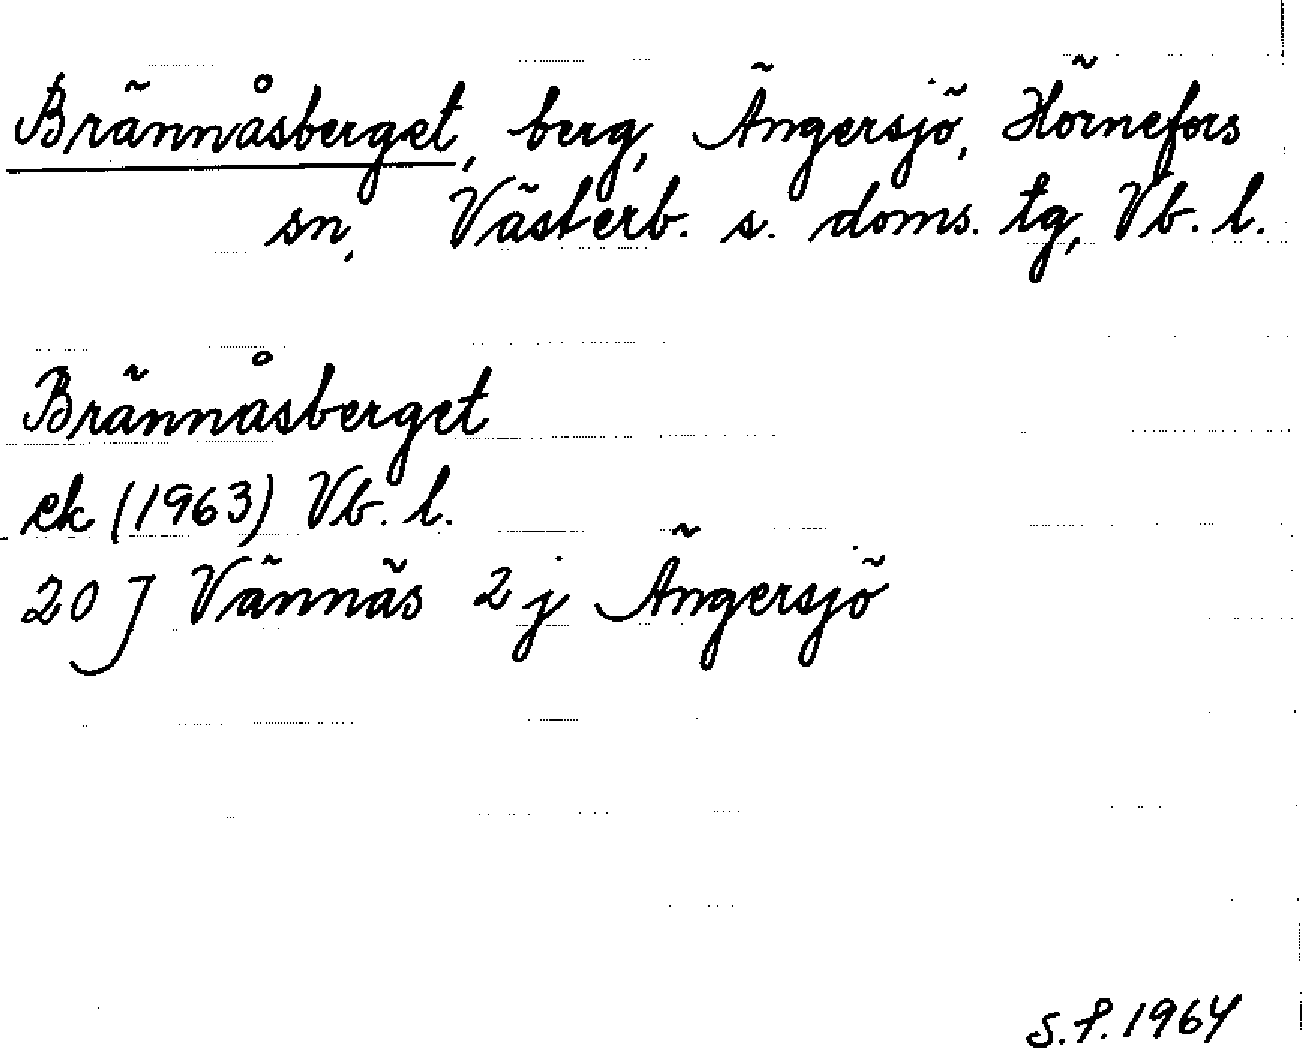 Brännåsberget, berg, Ängersjö, Hörnefors
sn, Västerb. s. doms. tg, Vb. l.
Brännåsberget
ek (1963) Vb. l.
20 J Vännäs 2 j Ängersjö
S.P. 1964